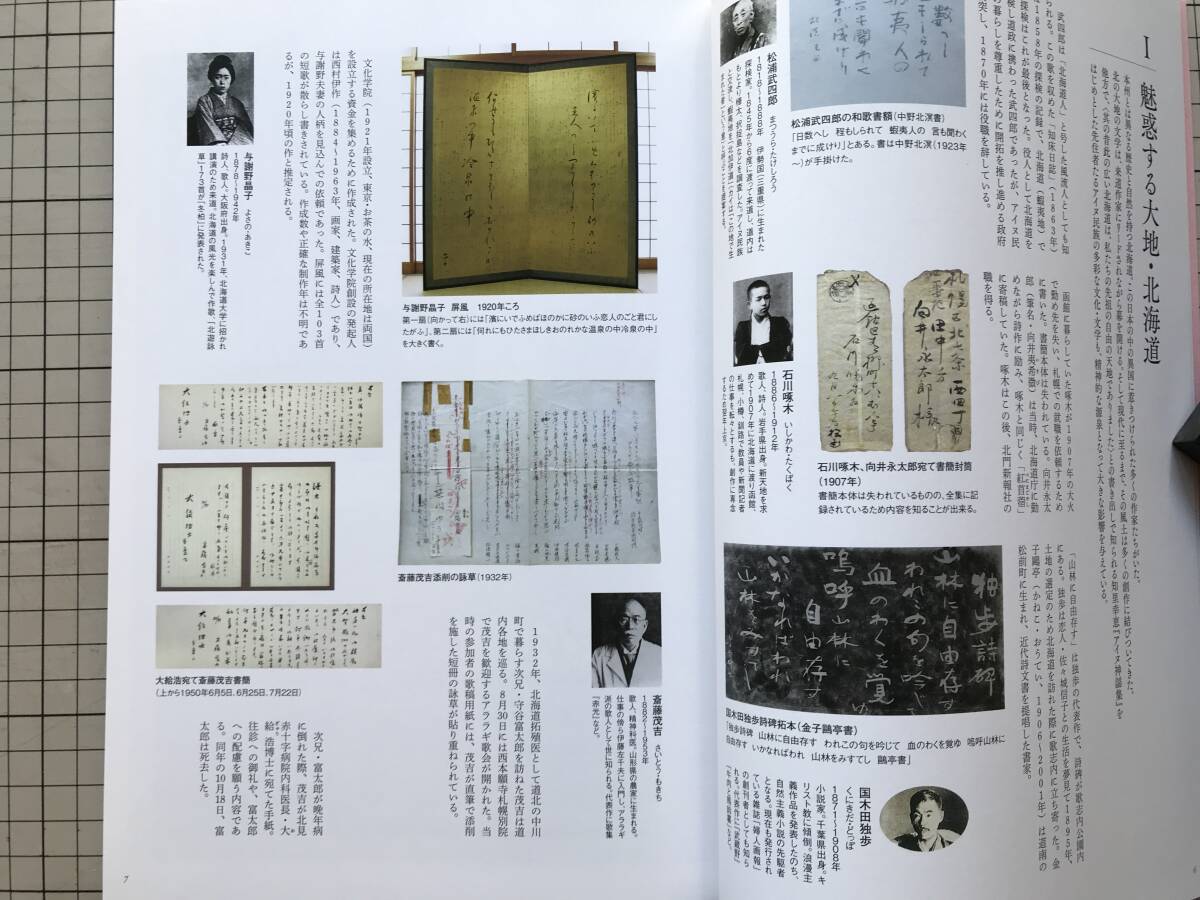 I 魅惑する大地・北海道
本州とは異なる歴史と自然を持つ北海道。この日本の中の異国に惹きつけられた多くの作家たちがいた。
北の大地の文学は、来道作家にリードされながら幕を開ける。そして現代に至るまで、その風土は多くの創作に結びついてきた。
はじめとした先住者たるアイヌ民族の多彩な文化・文学も、精神的な源泉となって大きな影響を与えている。
武四郎は「北海道人」と号した風流人としても知
られる。この歌を収めた「知床日誌」(1863年)
は1858年の探検の記録で、北海道(蝦夷地)で
の探検はこれが最後となった。役人として北海道を
探検し道政に携わった武四郎であったが、アイヌ民
族の暮らしを尊重したために開拓を推し進める政府
と衝突し、1870年には役職を辞している。
松浦武四郎の和歌書額(中野北溟書)
「日数へし 程もしられて 蝦夷人の 言も聞わく
までに成けり」とある。書は中野北溟(1923年
～)が手掛けた。
松浦武四郎 まつうら・たけしろう
1818～1888年 伊勢国(三重県)に生まれた
探検家。1845年から6度に渡って来道し、道内は
もとより樺太、択捉島などを調査した。アイヌ民族
函館に暮らしていた啄木が1907年の大火
で勤め先を失い、札幌での就職を依頼するため
に書いた。書簡本体は失われている。向井永太
郎(筆名・向井夷希微)は当時、北海道庁に勤
めながら詩作に励み、啄木と同じく「紅苜蓿」
に寄稿していた。啄木はこの後、北門新報社の
職を得る。
石川啄木、向井永太郎宛て書簡封筒
(1907年)
書簡本体は失われているものの、全集に記
録されているため内容を知ることが出来る。
石川啄木 いしかわ・たくぼく
1886～1912年
歌人、詩人。岩手県出身。新天地を求
めて1907年に北海道に渡り函館、
札幌、小樽、釧路で教員や新聞記者
の仕事を転々とするも、創作に専念
するため翌年上京。
「山林に自由存す」は独歩の代表作で、詩碑が歌志内公園内
にある。独歩は恋人・佐々城信子との生活を夢見て1895年、
土地の選定のため北海道を訪れた際に歌志内に立ち寄った。金
子鷗亭(かねこ・おうてい、1906～2001年)は道南の
松前町に生まれ、近代詩文書を提唱した書家。
独歩詩碑
山林に自由存す
われこの句を吟じて
血のわくを覚ゆ
嗚呼山林に
自由存す
いかなればわれ
山林をみすてし
国木田独歩詩碑拓本(金子鷗亭書)
「独歩詩碑 山林に自由存す われこの句を吟じて 血のわくを覚ゆ 嗚呼山林に
自由存す いかなればわれ 山林をみすてし 鷗亭書」
国木田独歩
くにきだ・どっぽ
1871～1908年
小説家。千葉県出身。キ
リスト教に傾倒。浪漫主
義作品を発表したのち、
自然主義小説の先駆者
となる。現在も発行され
ている雑誌「婦人画報」
の創刊者としても知ら
れる。代表作に「武蔵野」
「牛肉と馬鈴薯」など。
6
与謝野晶子 屏風 1920年ころ
第一扇(向かって右)には「濱にいでふめばほのかに砂のいふ恋人のごと君にし
たがふ」、第二扇には「何れにもひたさまほしきおのれかな温泉の中冷泉の中」
を大きく書く。
文化学院(1921年設立、東京・お茶の水、現在の所在地は両国)
を設立する資金を集めるために作成された。文化学院創設の発起人
は西村伊作(1884～1963年、画家、建築家、詩人)であり、
与謝野夫妻の人柄を見込んでの依頼であった。屏風には全103首
の短歌が散らし書きされている。作成数や正確な制作年は不明であ
るが、1920年頃の作と推定される。
与謝野晶子 よさの・あきこ
1878～1942年
詩人、歌人。大阪府出身。1931年、北海道大学に招かれ
講演のため来道。北海道の風光を楽しんで作歌、「北遊詠
草」173首が「冬柏」に発表された。
斎藤茂吉添削の詠草(1932年)
斎藤茂吉 さいとう・もきち
1882～1953年
歌人、精神科医。山形県の農家に生まれる。
仕事の傍ら伊藤左千夫に入門し、アララギ
派の歌人として世に知られる。代表作に歌集
『赤光』など。
1932年、北海道拓殖医として道北の中川
町で暮らす次兄・守谷富太郎を訪ねた茂吉は道
内各地を巡る。8月30日には西本願寺札幌別院
で茂吉を歓迎するアララギ歌会が開かれた。当
時の参加者の歌稿用紙には、茂吉が直筆で添削
を施した短冊の詠草が貼り重ねられている。
大給浩宛て斎藤茂吉書簡
(上から1950年6月5日、6月25日、7月22日)
次兄・富太郎が晩年病
に倒れた際、茂吉が北見
赤十字病院内科医長・大
給 浩博士に宛てた手紙。
往診への御礼や、富太郎
への配慮を願う内容であ
る。同年の10月18日、富
太郎は死去した。
7